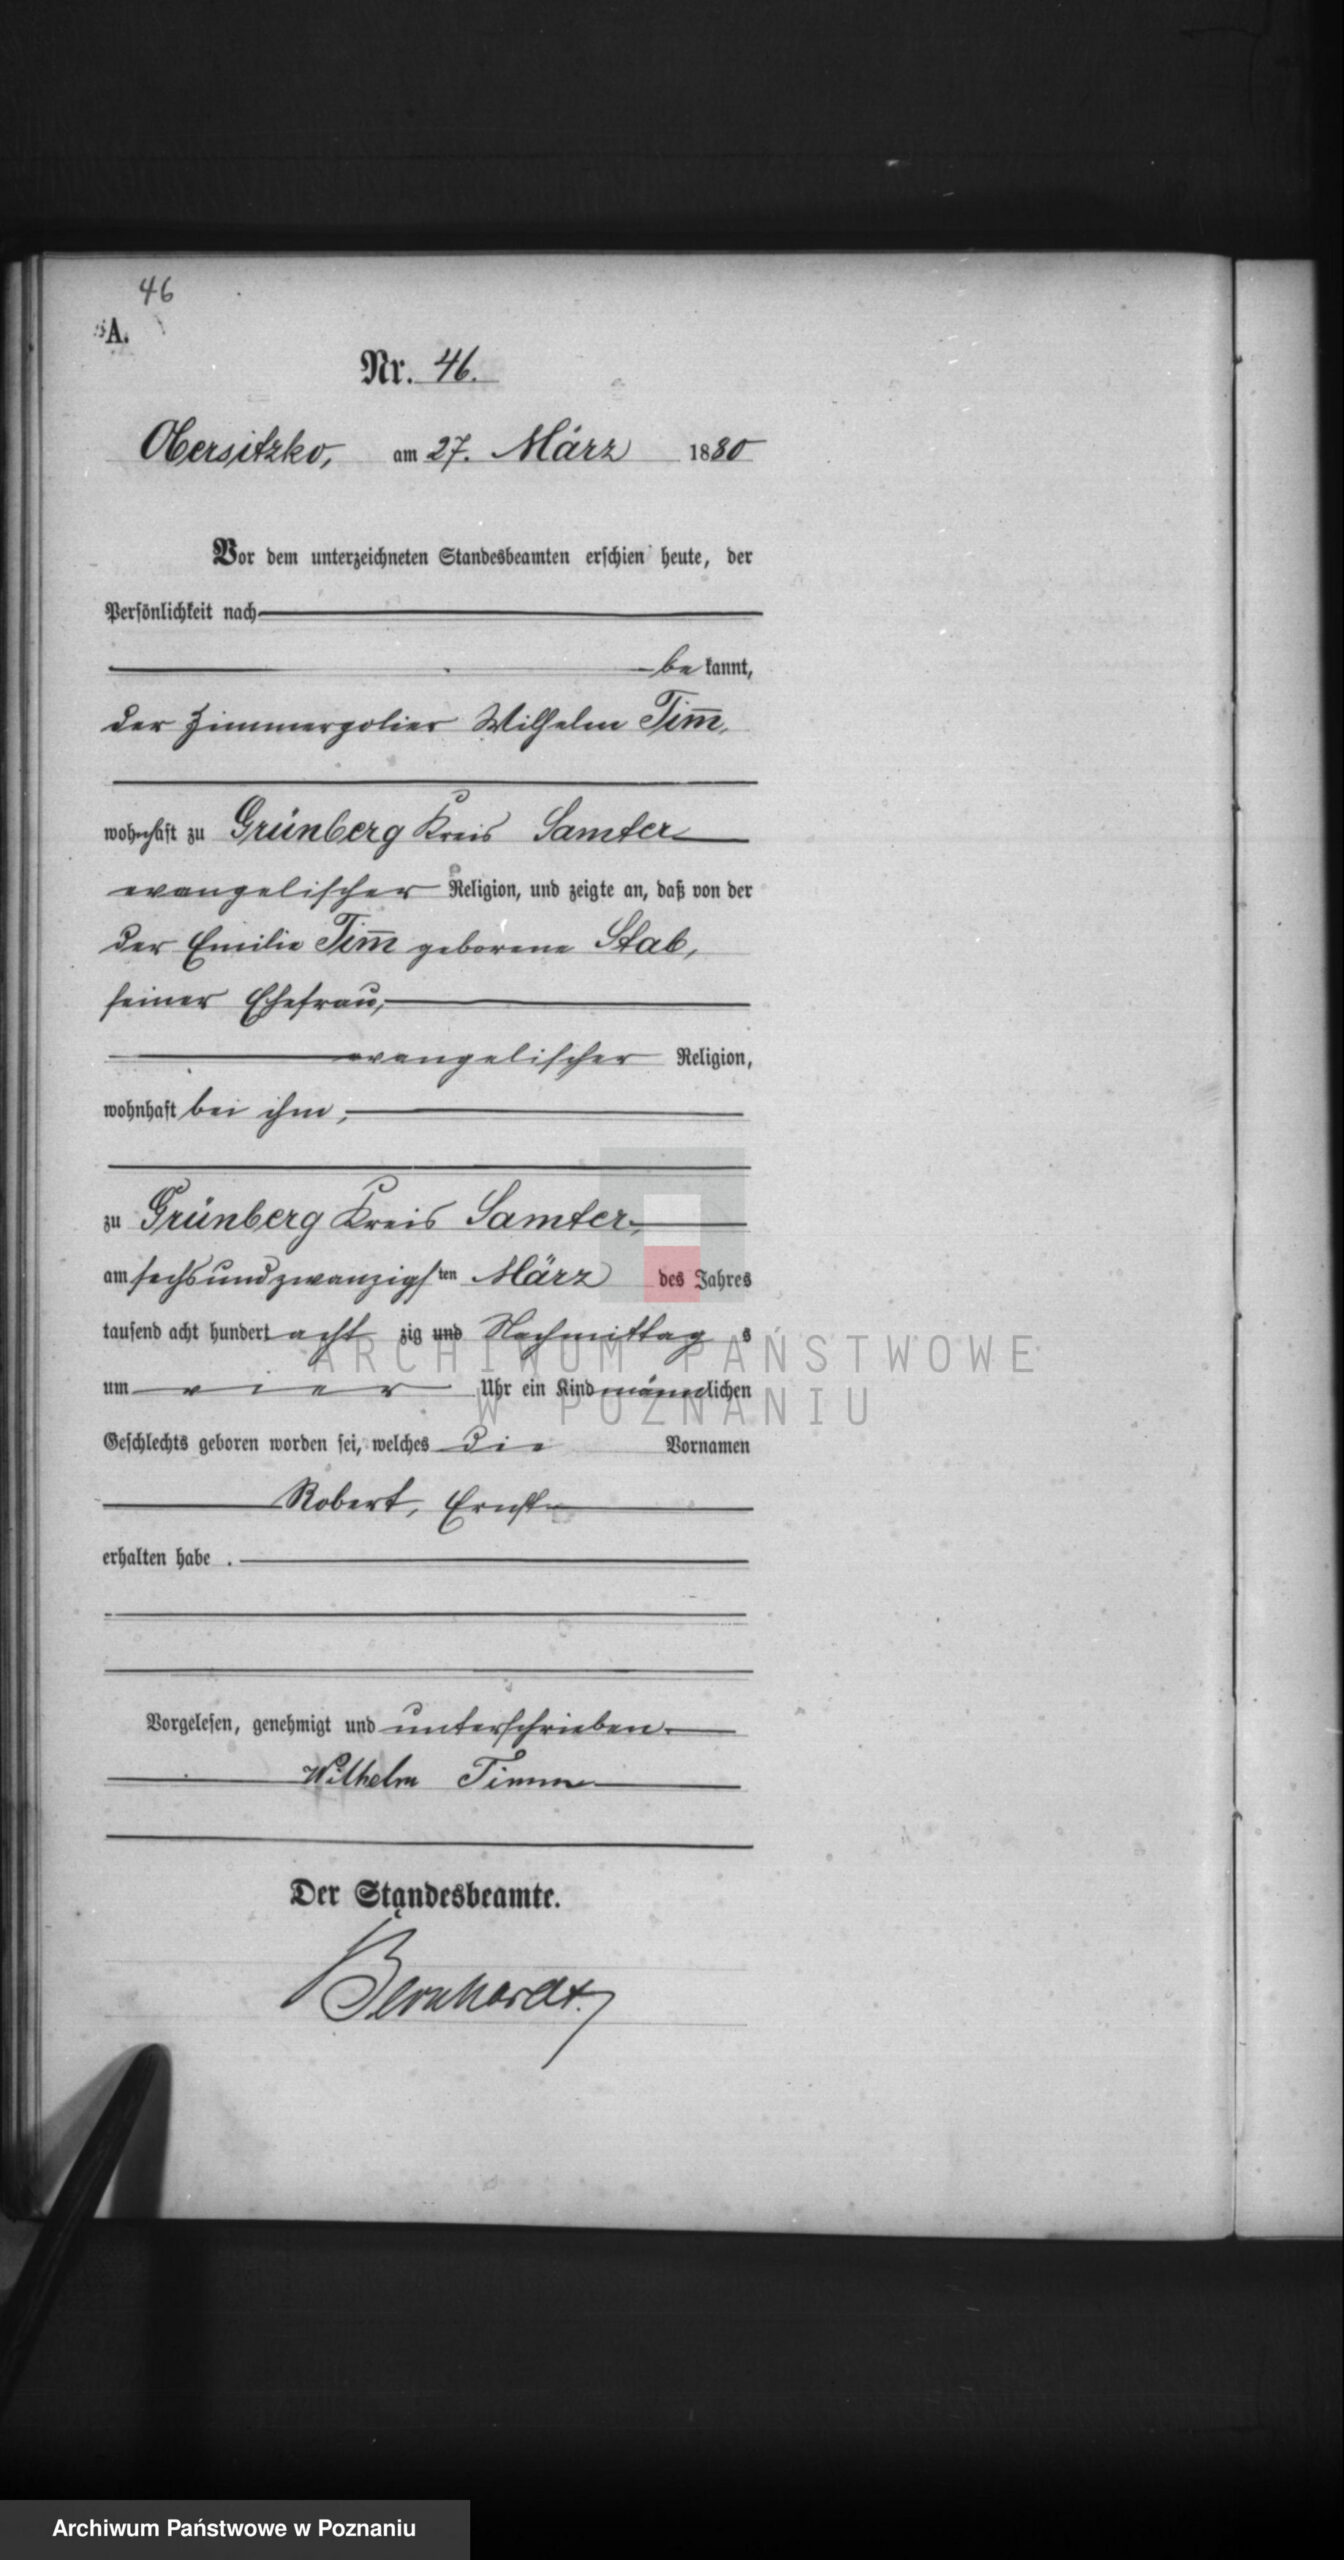 46
A.
Nr. 46.
Obersitzko, am 27. März 1880
Vor dem unterzeichneten Standesbeamten erschien heute, der
Persönlichkeit nach
be kannt,
der Zimmerpolier Wilhelm Tim̅,
wohnhaft zu Grünberg Kreis Samter
evangelischer Religion, und zeigte an, daß von der
der Emilie Tim̅ geborene Stab,
seiner Ehefrau,
evangelischer Religion,
wohnhaft bei ihm,
zu Grünberg Kreis Samter,
am sechsundzwanzigsten März des Jahres
tausend acht hundert acht zig und Nachmittag s
um vier Uhr ein Kind männlichen
Geschlechts geboren worden sei, welches die Vornamen
Robert, Ernst
erhalten habe .
Vorgelesen, genehmigt und unterschrieben.
Wilhelm Timm
Der Standesbeamte.
Bernhardt.
ARCHIWUM PAŃSTWOWE
W POZNANIU
Archiwum Państwowe w Poznaniu